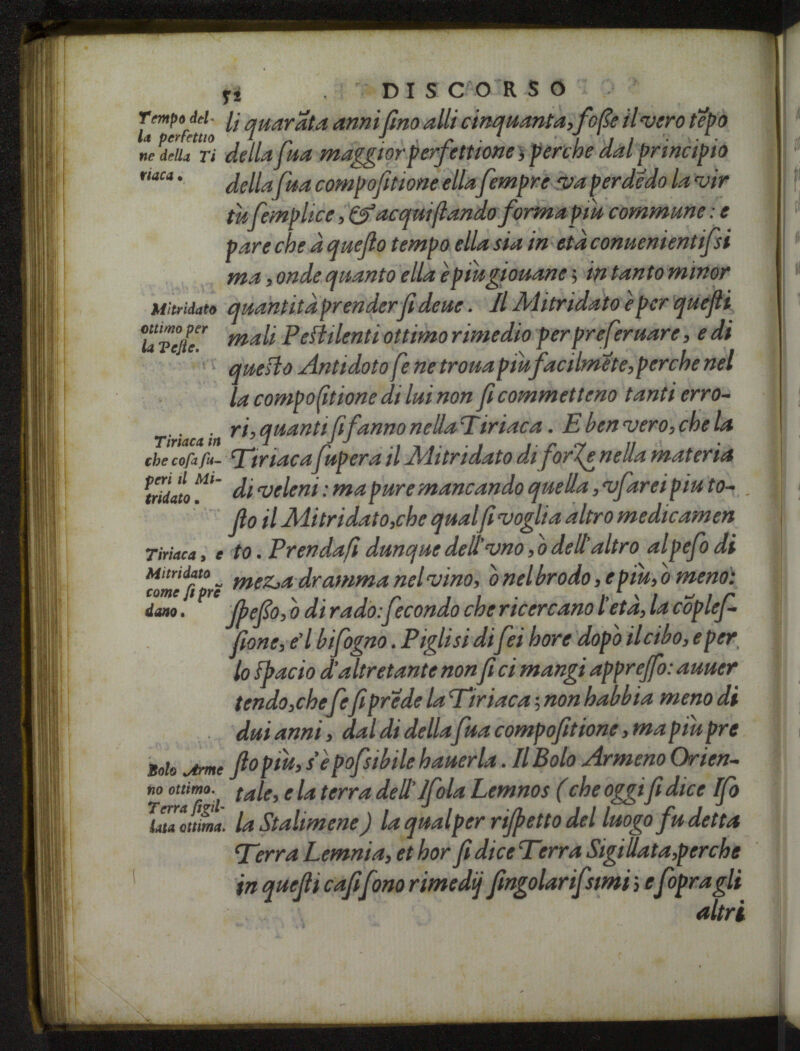 52 DISCORSO
Tempo del-
la perfettio
ne della Ti
riaca.
li quarāta anni ſino alli cinquanta, foſſe il vero tēpo
della ſua maggior perfettione, perche dal principio
della ſua compoſitione ella ſempre va perdēdo la vir
tù ſemplice, & acquiſtando forma più commune: e
pare che à queſto tempo ella sia in età conuenientiſsi
ma, onde quanto ella è più giouane; in tanto minor
Mitridato
ottimo per
la Peſte.
quantità prender ſi deue. Il Mitridato è per queſti
mali Peſtilenti ottimo rimedio per preſeruare, e di
queſto Antidoto ſe ne troua più facilmēte, perche nel
la compoſitione di lui non ſi commetteno tanti erro-
ri, quanti ſi fanno nella Tiriaca. E ben vero, che la
Tiriaca in
che coſa ſu-
peri il Mi-
tridato.
Tiriaca ſupera il Mitridato di forze nella materia
di veleni: ma pure mancando quella, vſarei piu to-
ſto il Mitridato, che qual ſi voglia altro medicamen
Tiriaca, e
Mitridato
come ſi prē
dano.
to. Prendaſi dunque dell'vno, ò dell'altro al peſo di
meza dramma nel vino, ò nel brodo, e più, ò meno:
ſpeſſo, ò di rado: ſecondo che ricercano l'età, la cōpleſ-
ſione, e'l biſogno. Piglisi di ſei hore dopò il cibo, e per
lo ſpacio d'altretante non ſi ci mangi appreſſo: auuer
tendo, che ſe ſi prēde la Tiriaca; non habbia meno di
dui anni, dal di della ſua compoſitione, ma più pre
Bolo Arme
no ottimo.
Terra ſigil-
lata ottima.
ſto più, s'è poſsibile hauerla. Il Bolo Armeno Orien-
tale, e la terra dell'Iſola Lemnos (che oggi ſi dice Iſo
la Stalimene) la qual per riſpetto del luogo fu detta
Terra Lemnia, et hor ſi dice Terra Sigillata, perche
in queſti caſi ſono rimedij ſingolariſsimi; e ſopra gli
altri